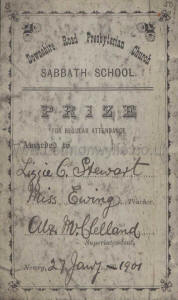 Downshire Road Presbyterian Church
SABBATH SCHOOL.
PRIZE
FOR REGULAR ATTENDANCE
Awarded to
Lizzie C. Stewart
Miss Ewing Teacher.
Alex McClelland
Superintendent.
Newry, 27 Jany - 1901